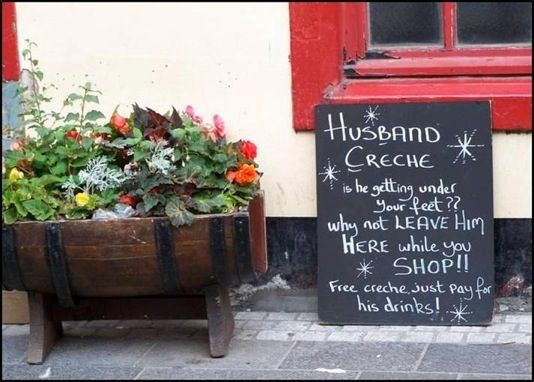 HUSBAND
CRECHE
is he getting under
your feet??
why not LEAVE HIM
HERE while you
SHOP!!
Free creche, just pay for
his drinks!